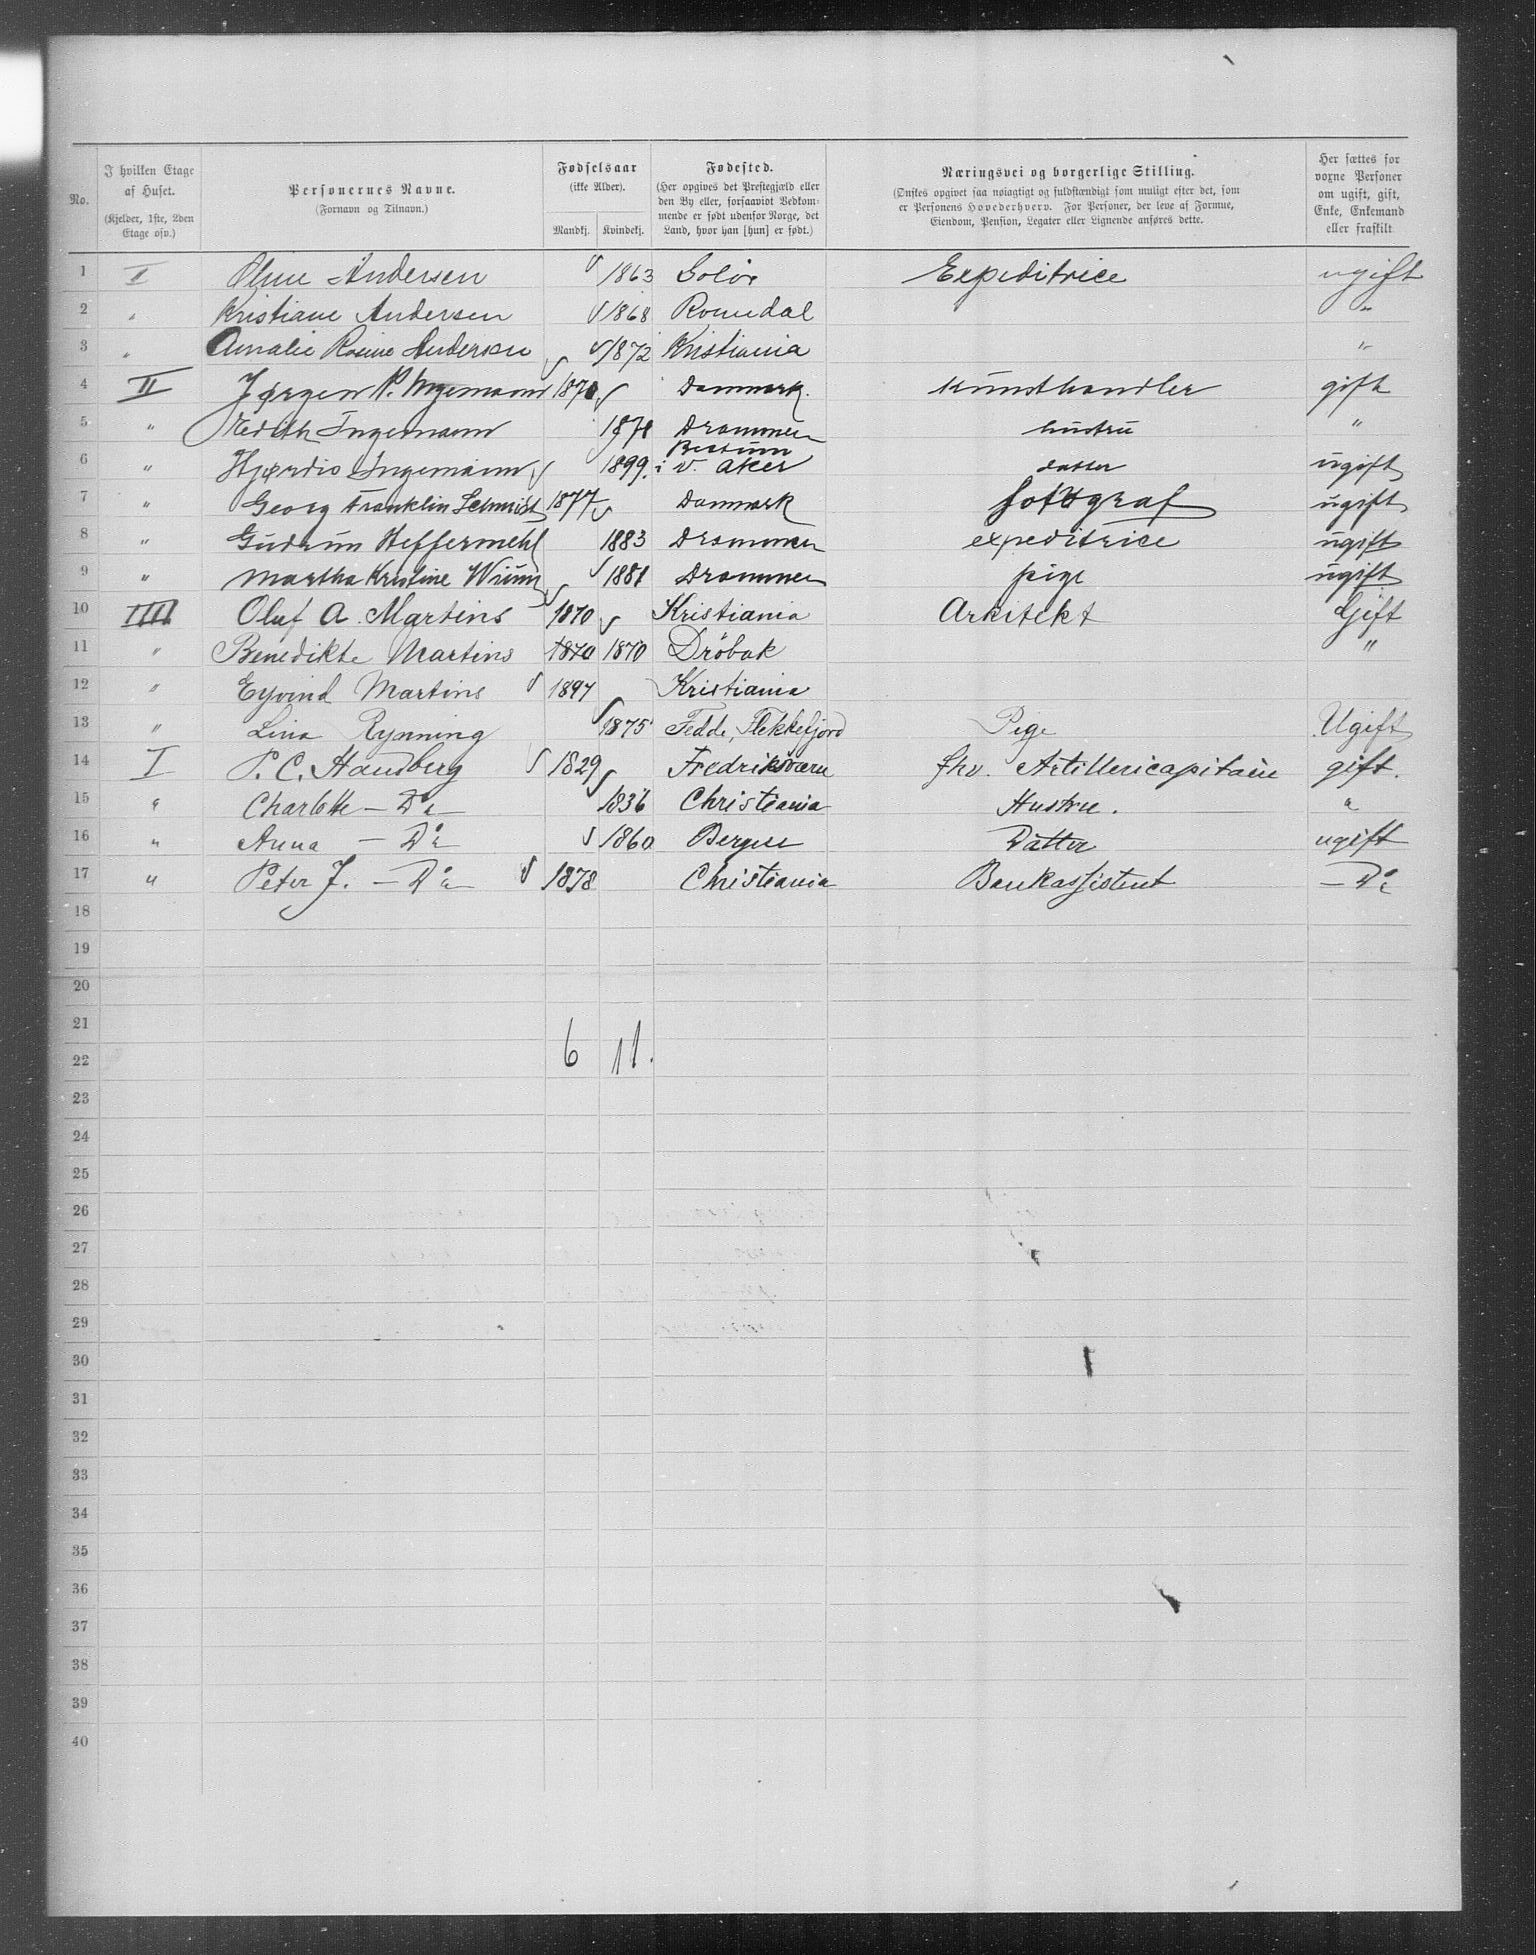 No.
I hvilken Etage af Huset.
(Kjelder, 1ste, 2den Etage osv.)
Personernes Navne.
(Fornavn og Tilnavn.)
Fødselsaar
(ikke Alder).
Mandkj. Kvindekj.
Fødested.
(Her opgives det Prestegjæld eller
den By eller, forsaavidt Vedkom-
mende er født udenfor Norge, det
Land, hvor han [hun] er født.)
Næringsvei og borgerlige Stilling.
(Ønskes opgivet saa nøiagtigt og fuldstændigt som muligt efter det, som
er Personens Hovederhverv. For Personer, der leve af Formue,
Eiendom, Pension, Legater eller Lignende anføres dette.
Her sættes for
voxne Personer
om ugift, gift,
Enke, Enkemand
eller fraskilt
1 I Oline Andersen 1863 Solør Expeditrice ugift
2 " Kristiane Andersen 1868 Romedal "
3 " Amalie Rosine Andersen 1872 Kristiania "
4 II Jørgen P. Ingemann 1870 Danmark. Kunsthandler gift
5 " Ingemann Drammen hustru "
6 " Hjørdis Ingemann 1899. Bestum i V. Aker datter ugift
7 " Georg Franklin Schmidt 1877 Danmark fotograf ugift
8 " Gudrun Heffermehl 1883 Drammen expeditrice ugift
9 " Martha Kristine 1881 Drammen pige ugift
10 IIII Oluf A. Martins 1870 Kristiania Arkitekt Gift
11 " Benedikte Martins 1870 1870 Drøbak "
12 " Eyvind Martins 1897 Kristiania
13 " Lina Rynning 1875 Fedde, Flekkefjord Pige Ugift
14 I P. C. Handberg 1829 Fredriksværn fhv. Artillericapitain gift.
15 " Charlotte — Do — 1836 Christiania Hustru. "
16 " Anna — Do 1860 Bergen Datter ugift
17 " Peter J. — Do — 1878 Christiania Bankassistent — Do
18
19
20
21
6 11.
22
23
24
25
26
27
28
29
30
31
32
33
34
35
36
37
38
39
40